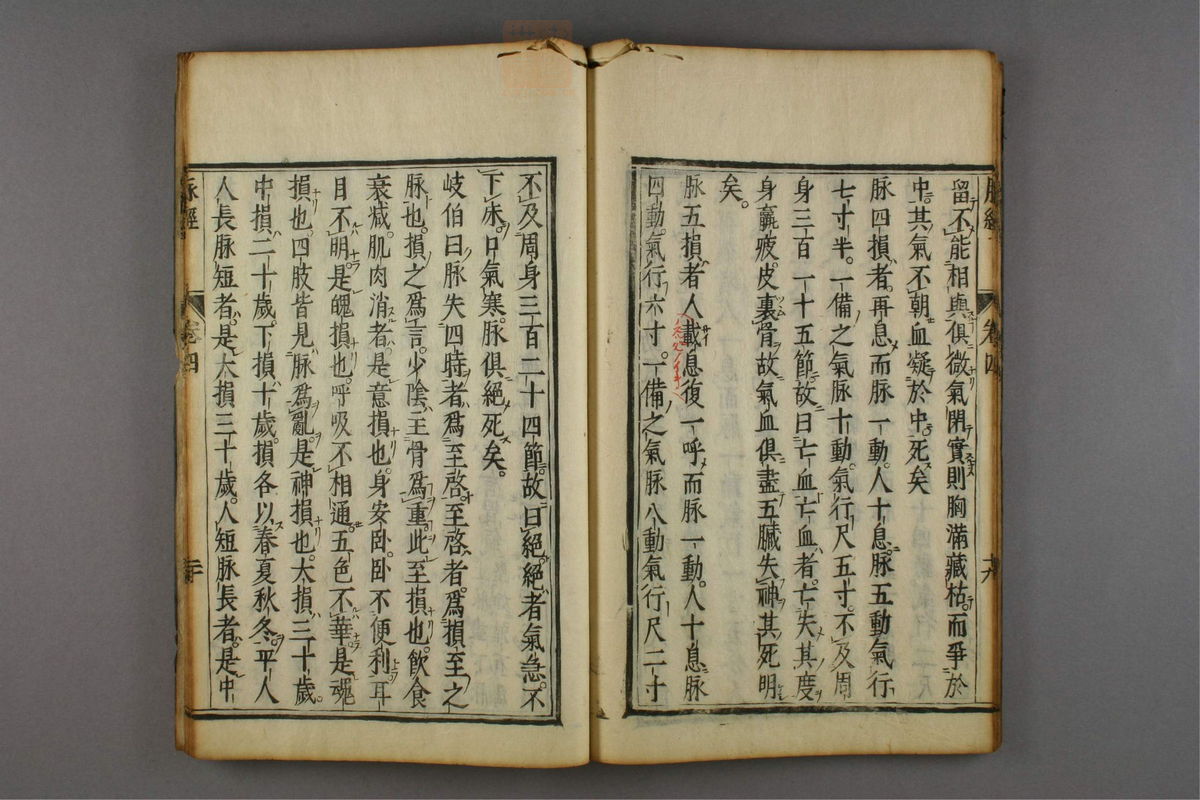 脉經
卷四
十九
留不能相與俱微氣閉實則胸滿藏枯而爭於
中其氣不朝血凝於中死矣
脉四損者再息而脉一動人十息脉五動氣行
七寸半一備之氣脉十動氣行尺五寸不及周
身三百一十五節故曰亡血亡血者亡失其度
身羸疲皮裹骨故氣血俱盡五臟失神其死明
矣
脉五損者人載息復一呼而脉一動人十息脉
四動氣行六寸一備之氣脉八動氣行尺二寸
不及周身三百二十四節故曰絕絕者氣急不
下床口氣寒脉俱絕死矣
岐伯曰脉失四時者爲至啓至啓者爲損至之
脉也損之爲言少陰主骨爲重此至損也飲食
衰减肌肉消者是意損也身安卧卧不便利耳
目不明是魄損也呼吸不相通五色不華是魂
損也四肢皆見脉爲亂是神損也大損三十歲
中損二十歲下損十歲損各以春夏秋冬平人
人長脉短者是大損三十歲人短脉長者是中
脉經
卷四
二十